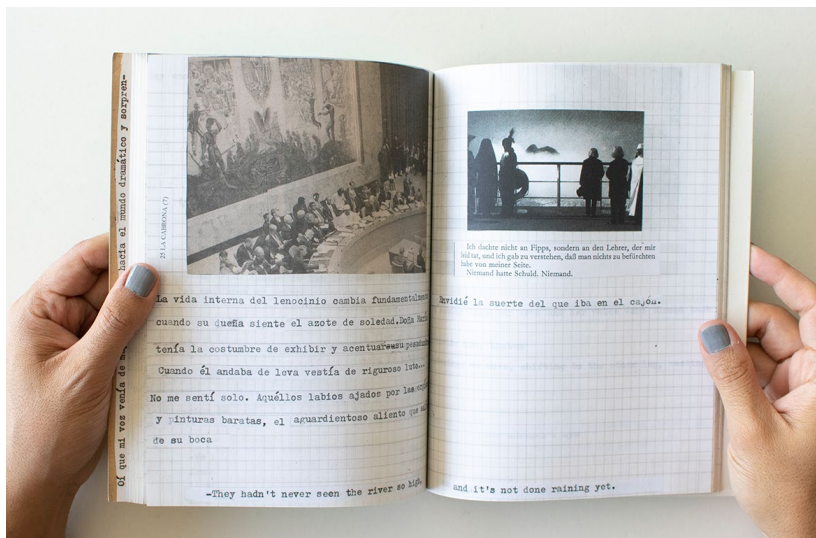 Oí que mi voz venía de hacia el mundo dramático y sorpren-
25 LA CABRONA (7)
La vida interna del lenocinio cambia
cuando su dueña siente el azote de soledad. Doña
tenía la costumbre de exhibir y acentuar
Cuando él andaba de leva vestía de riguroso luto...
No me sentí solo. Aquéllos labios ajados por
y pinturas baratas, el aguardientoso aliento que
de su boca
-They hadn't never seen the river so high,
Ich dachte nicht an Fipps, sondern an den Lehrer, der mir
leid tat, und ich gab zu verstehen, daß man nichts zu befürchten
habe von meiner Seite.
Niemand hatte Schuld. Niemand.
Envidié la suerte del que iba en el cajón.
and it's not done raining yet.